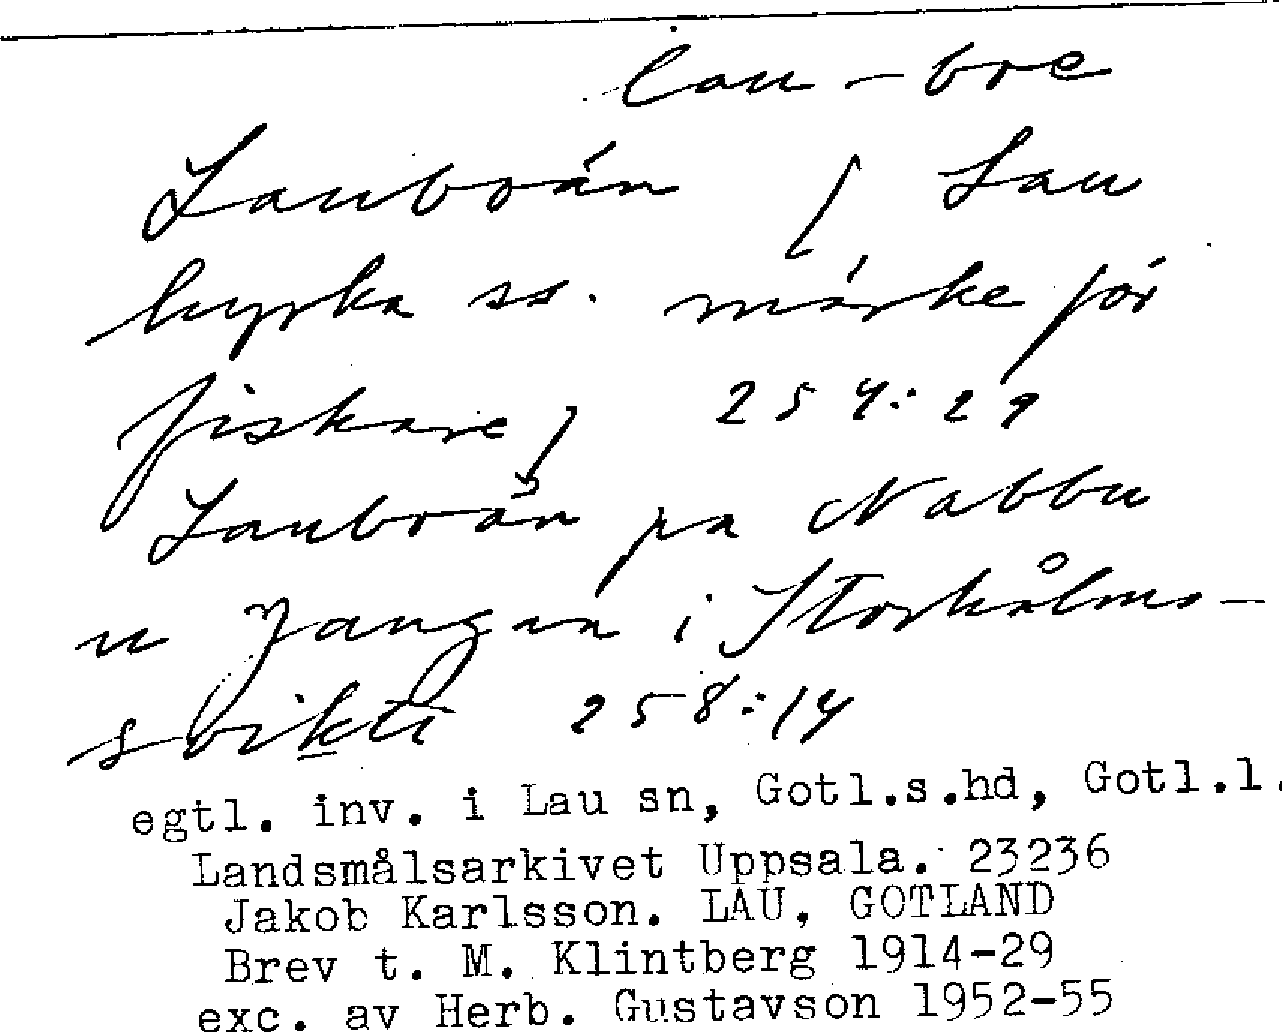 lau-boe
Lauboán [Lau
kyrka ss. märke för
fiskare] 254:29
Lauboån pa Nabbu
u Jaugan i Storhålms-
svikti 258:14
egtl. inv. i Lau sn, Gotl.s.hd, Gotl.l.
Landsmålsarkivet Uppsala. 23236
Jakob Karlsson. LAU, GOTLAND
Brev t. M. Klintberg 1914-29
exc. av Herb. Gustavson 1952-55